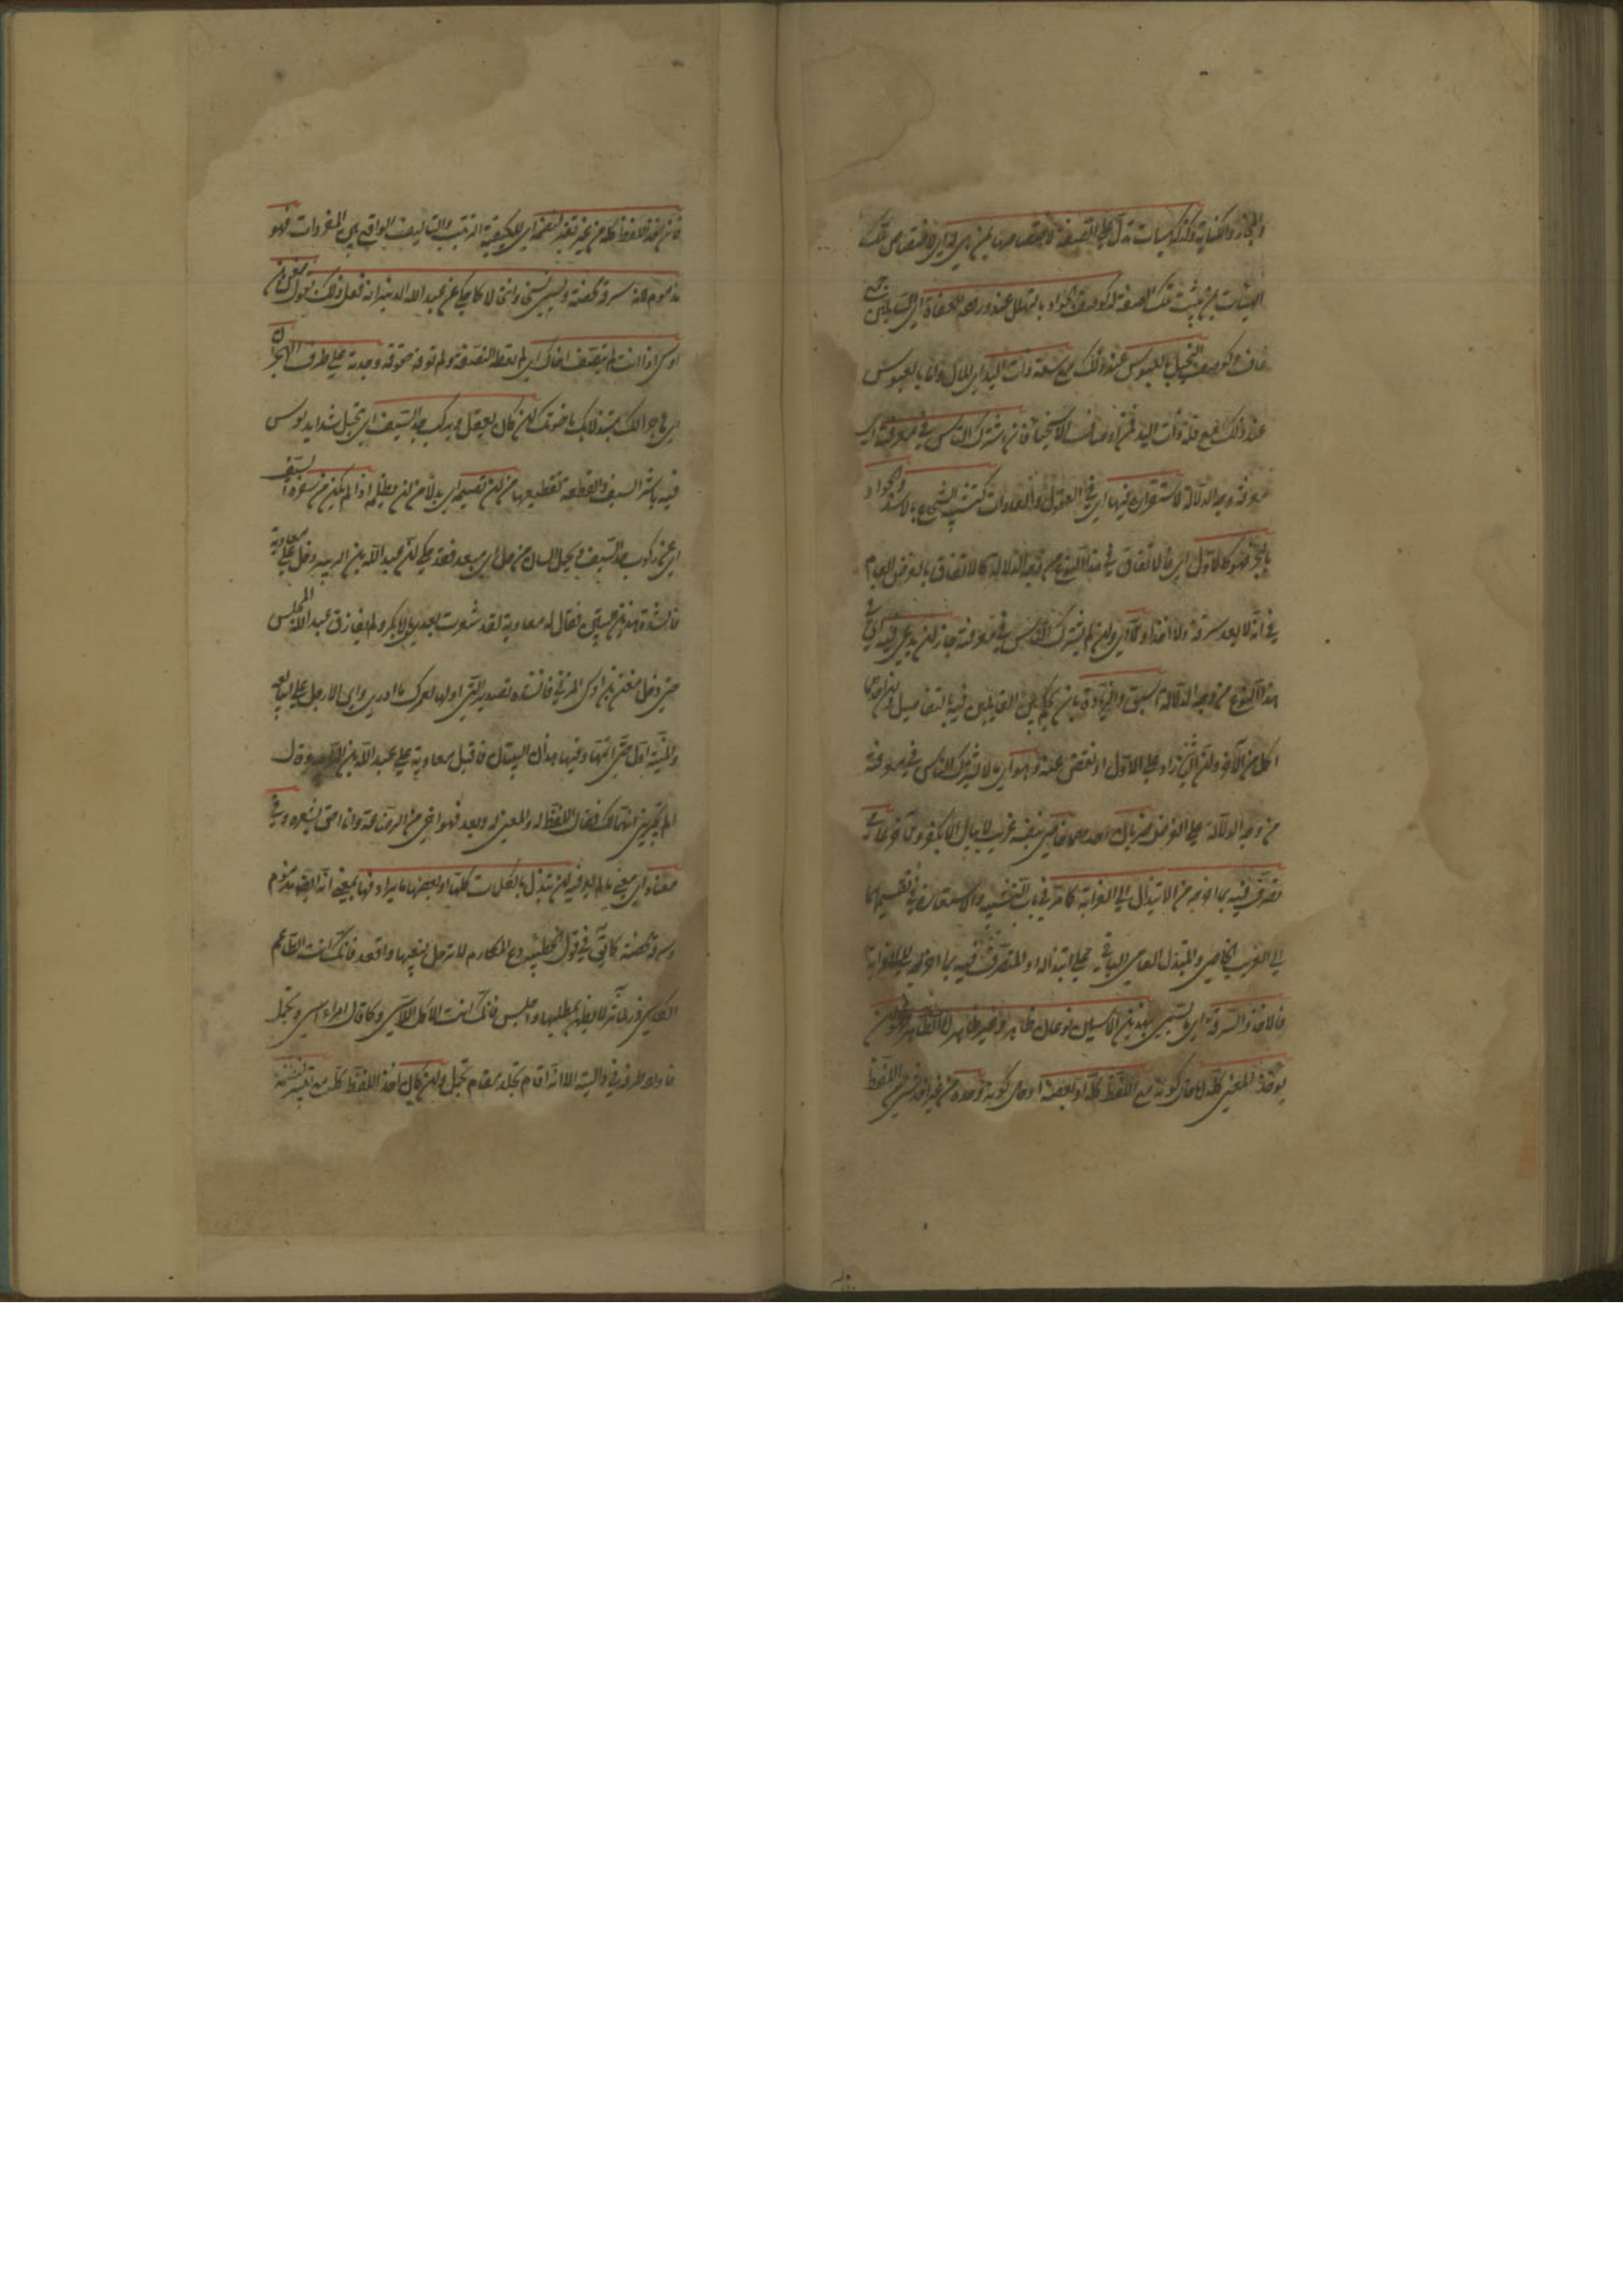 والمجاز والكناية وكذكر هيئات تدل على الصفة لاختصاصها بمن هي له اي لاختصاص تلك
الهيئات بمن يثبت تلك الصفة له كوصف الجواد بالتهلل عند ورود العفاة اي السائلين جمع
عاف وكوصف البخيل بالعبوس عند ذلك مع سعة ذات اليد اي المال واما بالعبوس
عند ذلك مع قلة ذات اليد فمن اوصاف الاسخياء فان اشترك الناس في معرفته اي
معرفة وجه الدلالة لاستقراره فيهما اي في العقول والعادات كتشبيه الشجاع بالاسد والجواد
بالبحر فهو كالاول اي فالاتفاق في هذا النوع من وجه الدلالة كالاتفاق في الغرض العام
في انه لا يعد سرقة ولا اخذا والا اي وان لم يشترك الناس في معرفته جاز ان يدعى فيه اي في
هذا النوع من وجه الدلالة السبق والزيادة بان يحكم بين القائلين فيه بالتفاضل وان احدهما
اكمل من الآخر وان الثاني زاد على الاول او نقص عنه وهو اي ما لا يشترك الناس في معرفته
من وجه الدلالة على الغرض ضربان احدهما خاصي في نفسه غريب لا ينال الا بفكر والآخر عامي
تصرف فيه بما اخرجه من الابتذال الى الغرابة كما مر في باب التشبيه والاستعارة في تقسيمهما
الى الغريب الخاصي والمبتذل العامي الباقي على ابتذاله او المتصرف فيه بما اخرجه الى الغرابة
فالاخذ والسرقة اي ما يسمى بهذين الاسمين نوعان ظاهر وغير ظاهر اما الظاهر فهو ان
يؤخذ المعنى كله اما حال كونه مع اللفظ كله او بعضه او حال كونه وحده من غير اخذ شيء من اللفظ
فان اخذ اللفظ كله من غير تغيير لنظمه اي لكيفية الترتيب والتأليف الواقع بين المفردات فهو
مذموم لانه سرقة محضة ويسمى نسخا وانتحالا كما حكي عن عبد الله الزبير انه فعل ذلك بقول معن بن
اوس اذا انت لم تنصف اخاك اي لم تعطه النصفة ولم توفه حقوقه وجدته على طرف الهجران
اي هاجرا لك متبدلا بك باخوتك ان كان يعقل ويركب حد السيف اي يتحمل شدايد توس
فيه تأثير السيف وتقطعه تقطيعها من ان تضيمه اي بدلا من ان تظلمه اذا لم يكن عن شفرة السيف
اي عن ركوب حد السيف وتحمل المشاق مزحل اي مبعد فقد حكي ان عبد الله بن الزبير دخل على معاوية
فانشده هذين البيتين فقال له معاوية لقد شعرت بعدي يا ابا بكر ولم يفارق عبد الله المجلس
حتى دخل معن بن اوس المزني فانشده قصيدته التي اولها لعمرك ما ادري واني لاوجل على اينا تعدو
المنية اول حتى اتمها وفيها هذان البيتان فاقبل معاوية على عبد الله بن الزبير وقال
الم تخبرني انهما لك فقال اللفظ له والمعنى لي وبعد فهو اخي من الرضاعة وانا احق بشعره وفي
معناه اي معنى ما لم يغير فيه ان تبدل بالكلمات كلها او بعضها ما يرادفها يعني انه ايضا مذموم
وسرقة محضة كما يقال في قول الحطيئة دع المكارم لا ترحل لبغيتها واقعد فانك انت الطاعم
الكاسي ذر المآثر لا تظعن لمطلبها واجلس فانك انت الآكل اللابس وكما قال امرء القيس وتجمل
فاورده طرفة في داليته الا انه اقام تجلد مقام تجمل وان كان اخذ اللفظ كله مع تغيير لنظمه